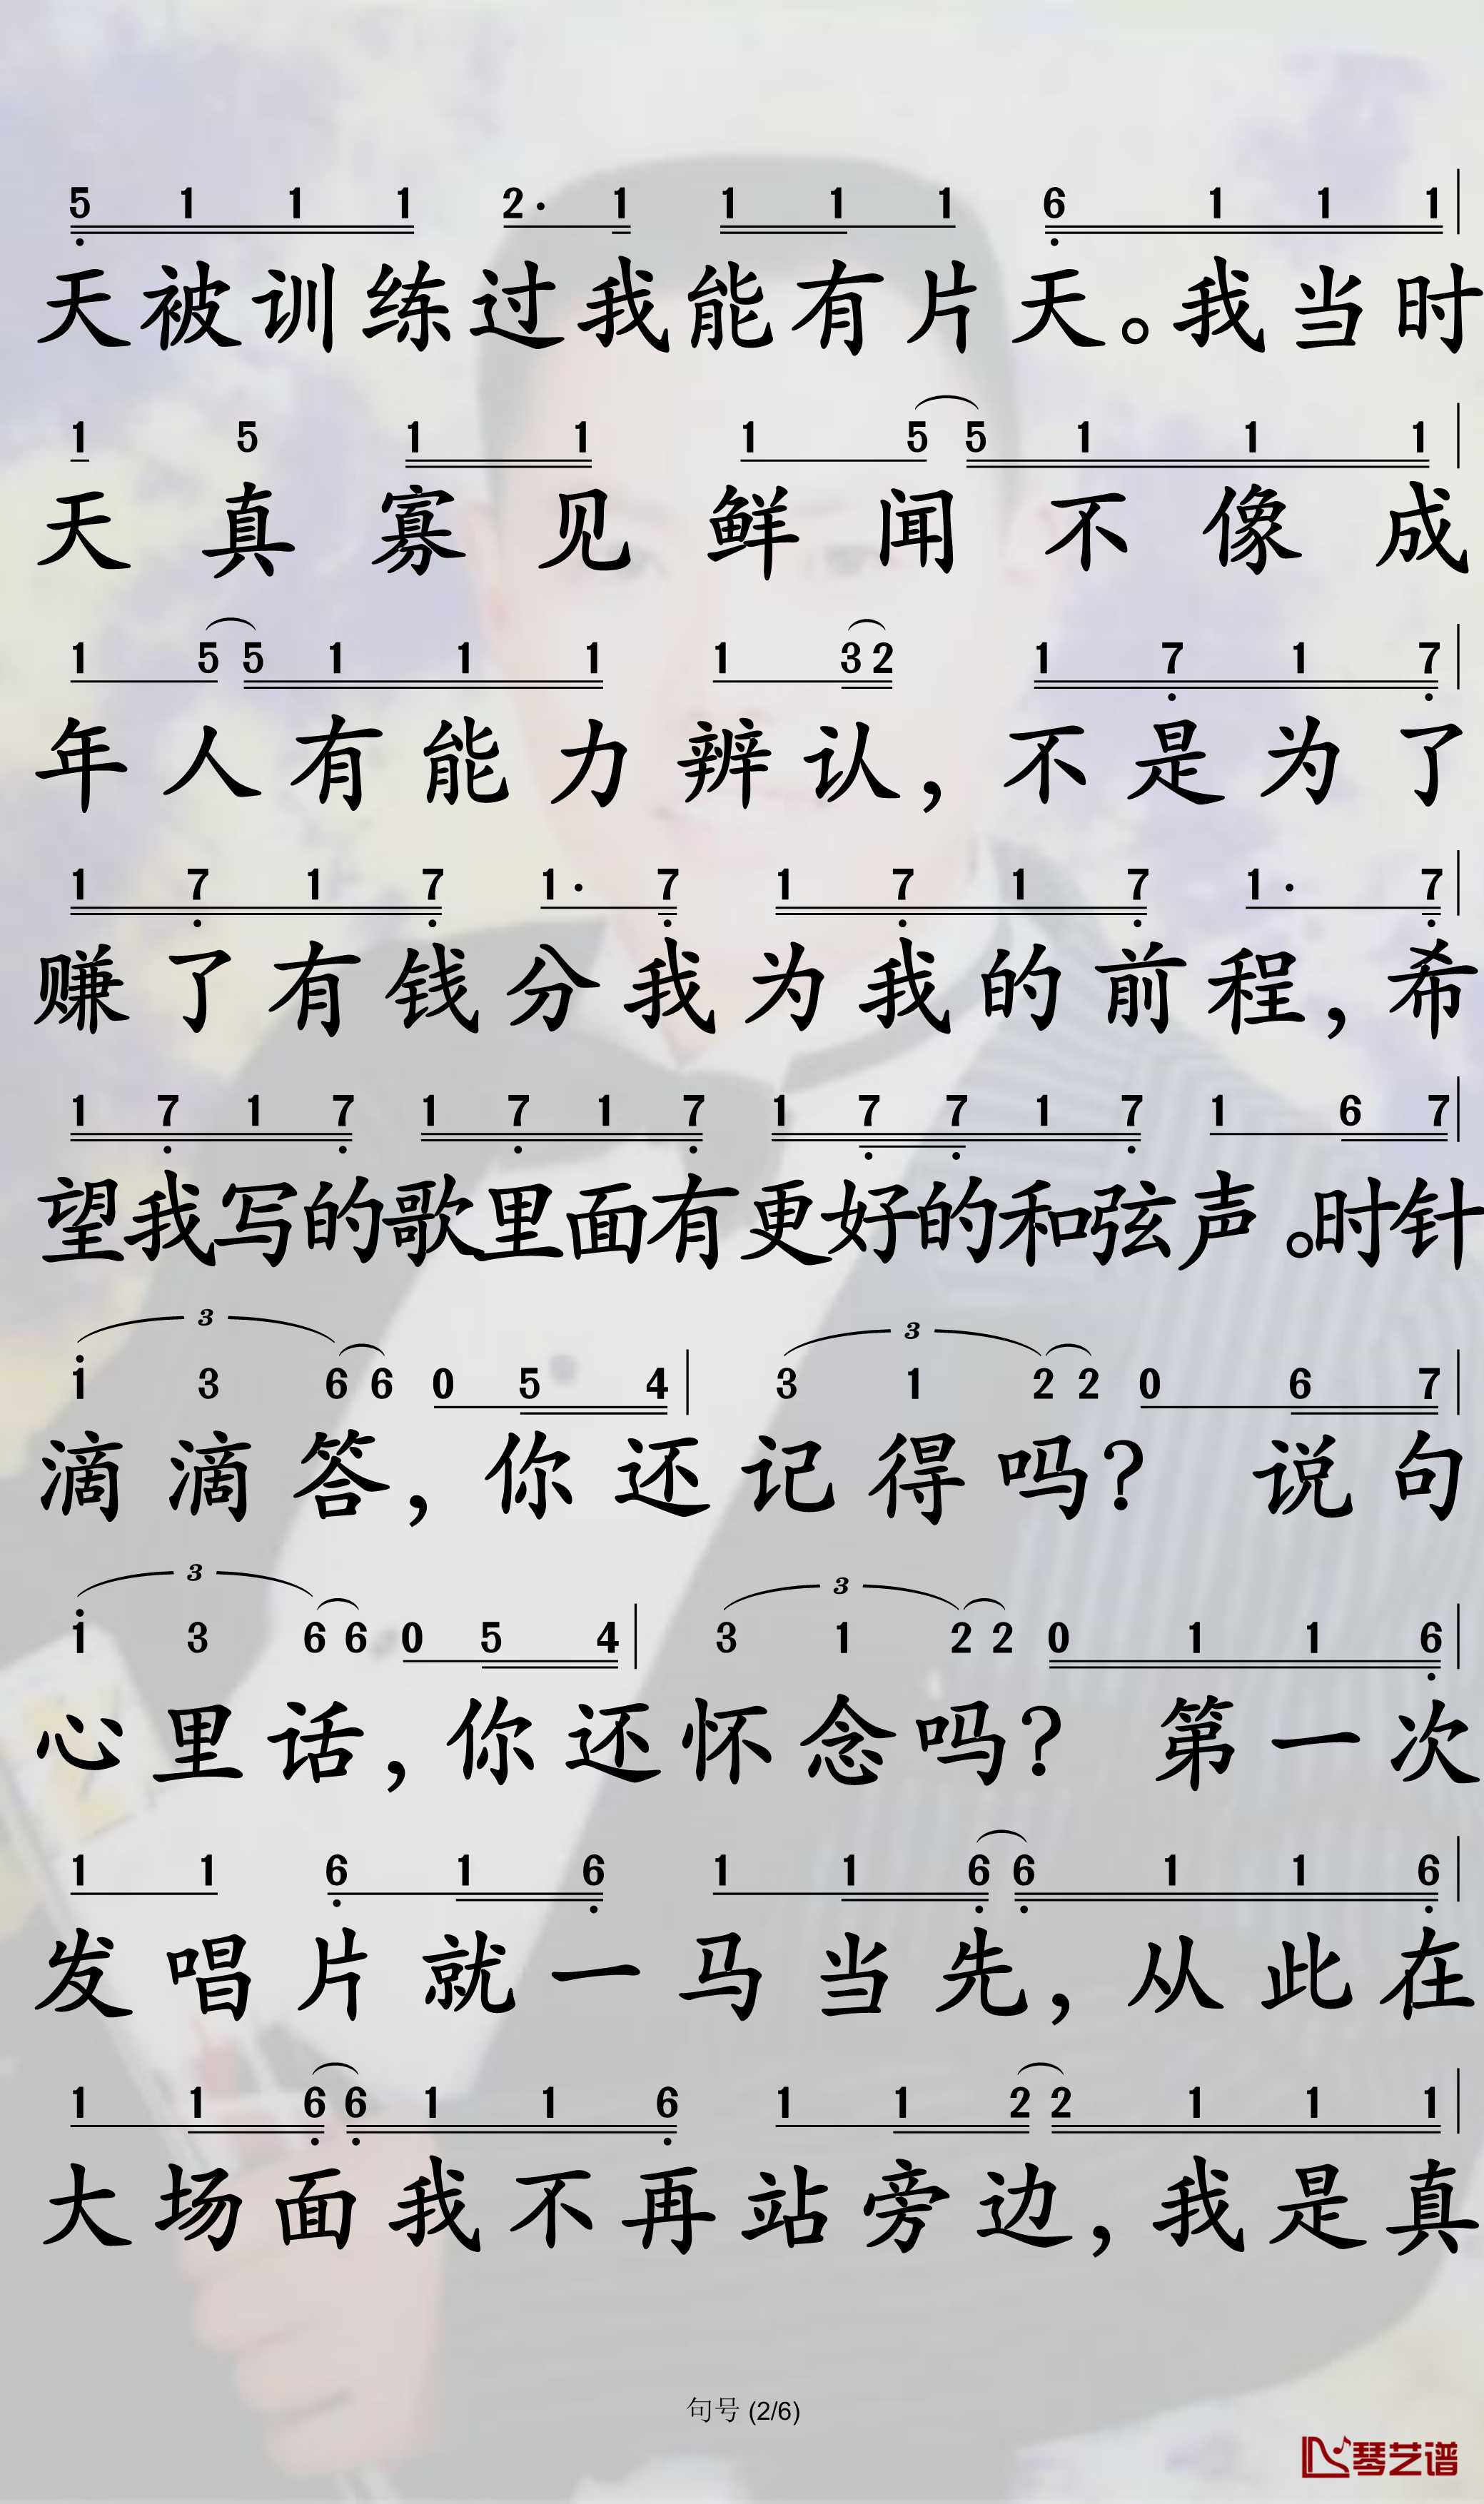 5 1 1 1 2· 1 1 1 1 6 1 1 1
天被训练过我能有片天。我当时
1 5 1 1 1 5 5 1 1 1
天真寡见鲜闻不像成
1 5 5 1 1 1 1 3 2 1 7 1 7
年人有能力辨认，不是为了
1 7 1 7 1· 7 1 7 1 7 1· 7
赚了有钱分我为我的前程，希
1 7 1 7 1 7 1 7 1 7 7 1 7 1 6 7
望我写的歌里面有更好的和弦声。时针
3 3
1 3 6 6 0 5 4 3 1 2 2 0 6 7
滴滴答，你还记得吗？说句
3 3
1 3 6 6 0 5 4 3 1 2 2 0 1 1 6
心里话，你还怀念吗？第一次
1 1 6 1 6 1 1 6 6 1 1 6
发唱片就一马当先，从此在
1 1 6 6 1 1 6 1 1 2 2 1 1 1
大场面我不再站旁边，我是真
句号 (2/6)
琴艺谱